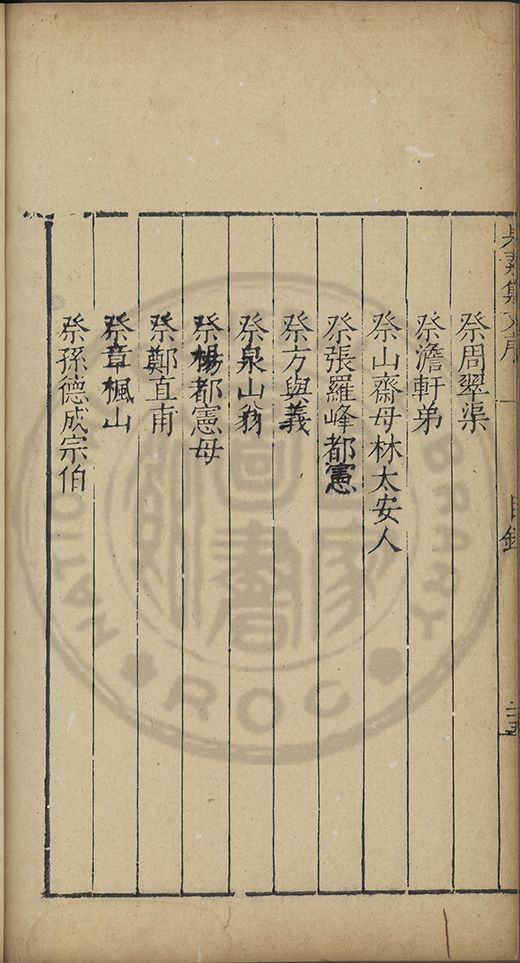 祭周翠渠
祭澹軒弟
祭山齋母林太安人
祭張羅峰都憲
祭方與義
祭泉山翁
祭楊都憲母
祭鄭直甫
祭章楓山
祭孫德成宗伯
目錄